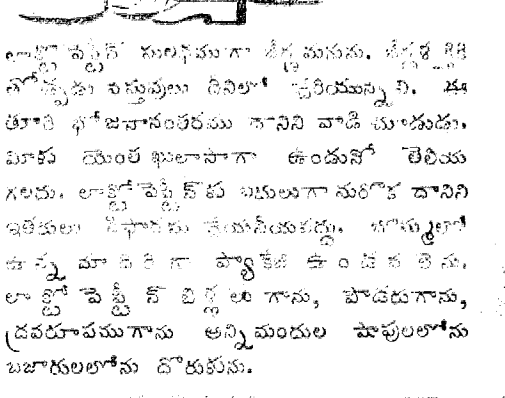 లాక్టో పెప్టీన్ సులభముగా జీర్ణమగును. జీర్ణశక్తికి
తోడ్పడు వస్తువులు దీనిలో చేరియున్నవి. ఈ
తూరి భోజనానంతరము దానిని వాడి చూడుడు.
మీకు యెంత ఖులాసాగా ఉండునో తెలియ
గలదు. లాక్టో పెప్టీన్‌కు బదులుగా మరొక దానిని
ఇతరులు సిఫారసు చేయనీయకడ్డు. బొమ్మలో
ఉన్న మాదిరిగా ప్యాకేజి ఉండవలెను.
లాక్టో పెప్టీన్ బిళ్లలుగాను, పౌడరుగాను,
ద్రవరూపముగాను అన్ని మందుల షాపులలోను
బజారులలోను దొరుకును.